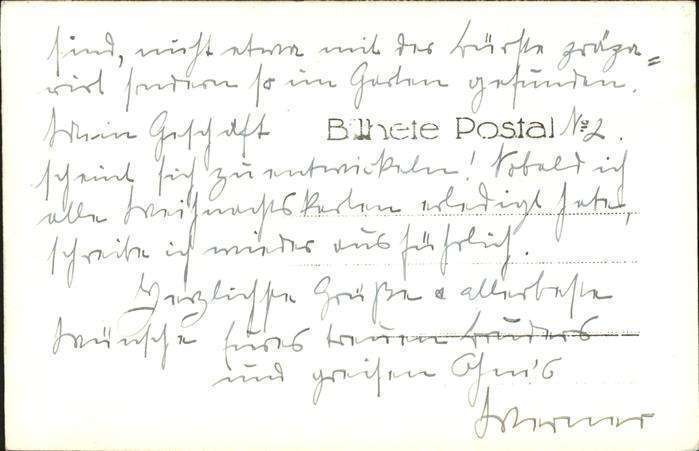 sind, nicht etwa mit der Bürste präpa=
rirt sondern so im Garten gefunden.
Mein Geschäft Bilhete Postal № 2.
scheint sich zu entwickeln! Sobald ich
alle Weihnachtskarten erledigt habe,
schreibe ich wieder ausführlich.
Herzlichste Grüße & allerbeste
Wünsche Eures treuen Bruders
und greisen Ohm's
Werner